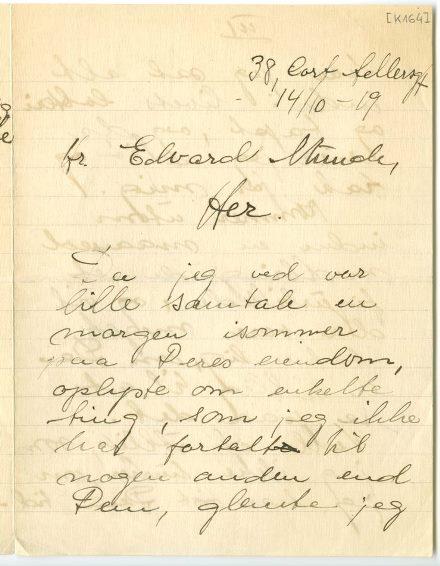 [K164]
38, Cort Adlersgt
14/10-19
Hr. Edvard Munch,
Her.
Da jeg ved vor
lille samtale en
morgen isommer
paa Deres eiendom,
oplyste om enkelte
ting, som jeg ikke
har fortalt til
nogen anden end
Dem, glemte jeg